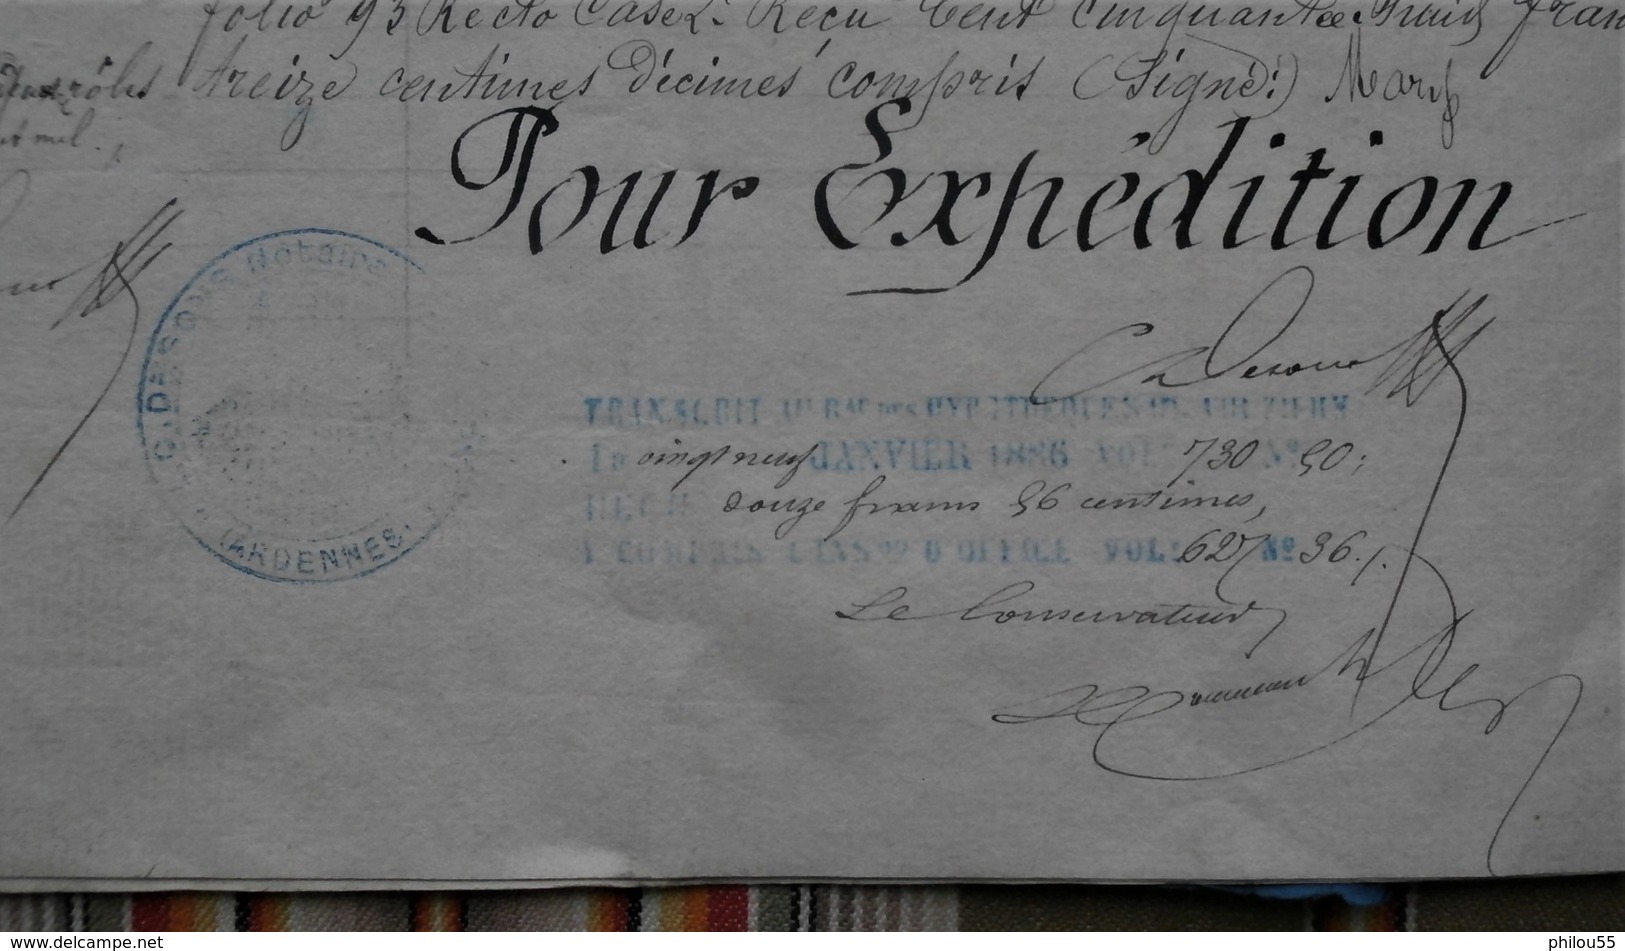 folio 93 Recto Case 2. Reçu Cent Cinquante Trois fran
rôles treize centimes Décimes compris (Signé:)
mil.
Pour Expédition
G. DESSONS Notaire
ARDENNES
TRANSCRIT AU BAU DES HYPOTHÈQUES DE VOUZIERS
LE vingt neuf JANVIER 1886 VOL 730 Nº 50;
REÇU douze francs 56 centimes,
Y COMPRIS L'INSon D'OFFICE VOL: 627 Nº 36./.
Le Conservateur
www.delcampe.net
philou55